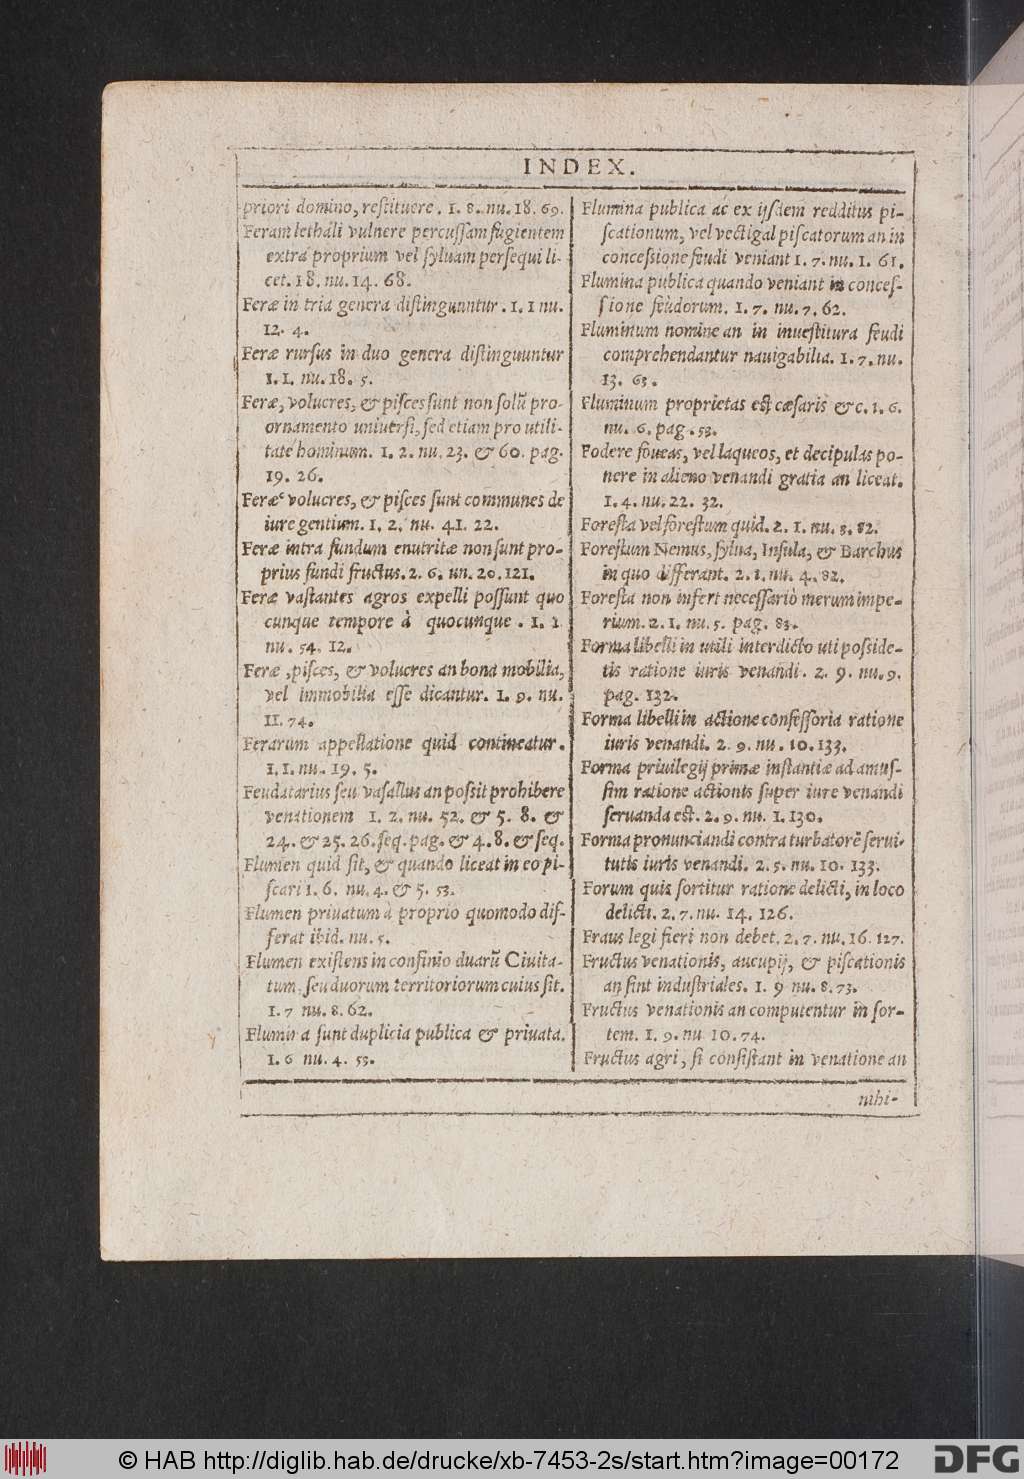 INDEX.
priori domino, reſtituere. 1. 8. nu. 18. 69.
Feram lethali vulnere percuſſam fugientem
extra proprium vel ſyluam perſequi li-
cet. 18. nu. 14. 68.
Feræ in tria genera diſtinguuntur. 1. 1 nu.
12. 4.
Feræ rurſus in duo genera diſtinguuntur
1. 1. nu. 18. 5.
Feræ, volucres, & piſces ſunt non ſolū pro
ornamento uniuerſi, ſed etiam pro utili-
tate hominum. 1. 2. nu. 23. & 60. pag.
19. 26.
Feræ volucres, & piſces ſunt communes de
iure gentium. 1. 2. nu. 41. 22.
Feræ intra fundum enutritæ non ſunt pro-
prius fundi fructus. 2. 6. un. 20. 121.
Feræ vaſtantes agros expelli poſſunt quo
cunque tempore à quocunque. 1. 1
nu. 54. 12.
Feræ, piſces, & volucres an bona mobilia,
vel immobilia eſſe dicantur. 1. 9. nu.
11. 74.
Ferarum appellatione quid contineatur.
1. 1. nu. 19. 5.
Feudatarius ſeu vaſallus an poſsit prohibere
venationem 1. 2. nu. 52. & 5. 8. &
24. & 25. 26. ſeq. pag. & 4. 8. & ſeq.
Flumen quid ſit, & quando liceat in eo pi-
ſcari 1. 6. nu. 4. & 5. 53.
Flumen priuatum à proprio quomodo dif-
ferat ibid. nu. 5.
Flumen exiſtens in confinio duarū Ciuita-
tum, ſeu duorum territoriorum cuius ſit.
1. 7 nu. 8. 62.
Flumina ſunt duplicia publica & priuata.
1. 6 nu. 4. 53.
Flumina publica ac ex ijſdem redditus pi-
ſcationum, vel vectigal piſcatorum an in
conceſsione feudi veniant 1. 7. nu. 1. 61.
Flumina publica quando veniant in conceſ-
ſione feudorum. 1. 7. nu. 7. 62.
Fluminum nomine an in inueſtitura feudi
comprehendantur nauigabilia. 1. 7. nu.
13. 63.
Fluminum proprietas eſt cæſaris &c. 1. 6.
nu. 6. pag. 53.
Fodere foueas, vel laqueos, et decipulas po-
nere in alieno venandi gratia an liceat.
1. 4. nu. 22. 32.
Foreſta vel foreſtum quid. 2. 1. nu. 3. 82.
Foreſtum Nemus, ſylua, Inſula, & Barchus
in quo differant. 2. 1. nu. 4. 82.
Foreſta non infert neceſſariò merum impe-
rium. 2. 1. nu. 5. pag. 83.
Forma libelli in utili interdicto uti poſside-
tis ratione iuris venandi. 2. 9. nu. 9.
pag. 132.
Forma libelli in actione confeſſoria ratione
iuris venandi. 2. 9. nu. 10. 133.
Forma priuilegij primæ inſtantiæ ad amuſ-
ſim ratione actionis ſuper iure venandi
ſeruanda eſt. 2. 9. nu. 1. 130.
Forma pronunciandi contra turbatorē ſerui-
tutis iuris venandi. 2. 5. nu. 10. 133.
Forum quis ſortitur ratione delicti, in loco
delicti. 2. 7. nu. 14. 126.
Fraus legi fieri non debet. 2. 7. nu. 16. 127.
Fructus venationis, aucupij, & piſcationis
an ſint induſtriales. 1. 9 nu. 8. 73.
Fructus venationis an computentur in ſor-
tem. 1. 9. nu 10. 74.
Fructus agri, ſi conſiſtant in venatione an
nihi-
© HAB http://diglib.hab.de/drucke/xb-7453-2s/start.htm?image=00172
DFG